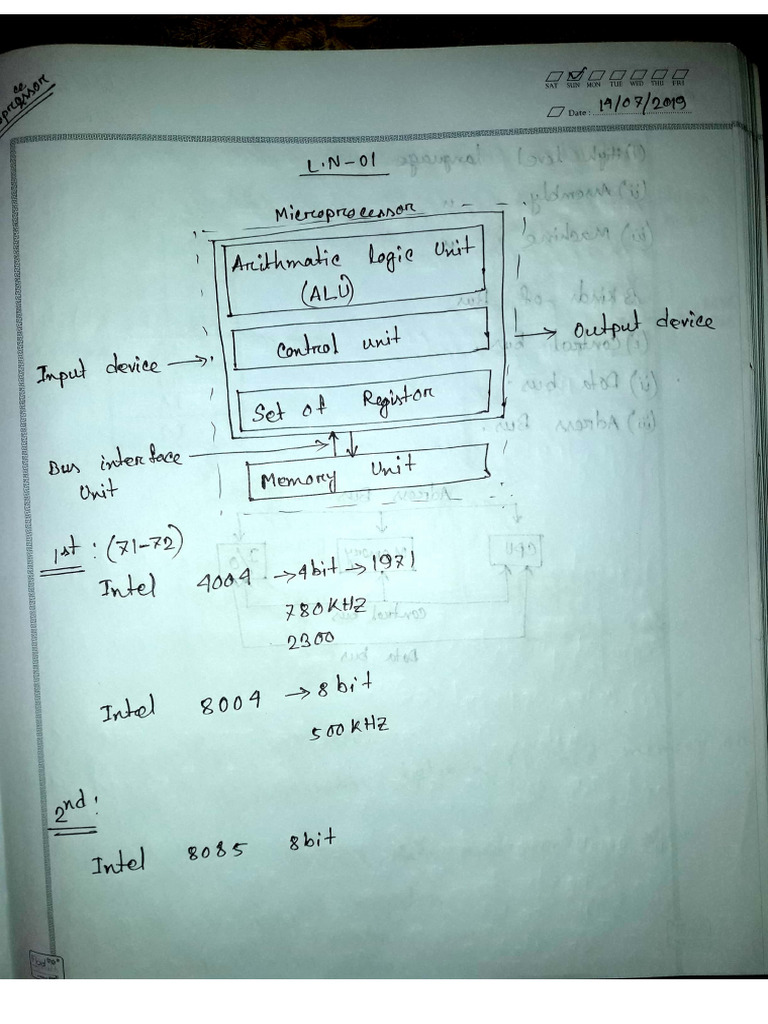 SAT SUN MON TUE WED THU FRI
Date: 14/07/2019
L.N-01
Microprocessor
Arithmatic Logic Unit
(ALU)
Control unit
Set of Registor
Input device
Output device
Bus interface
Unit
Memory Unit
1st: (71-72)
Intel 4004 → 4bit → 1971
780KHZ
2300
Intel 8004 → 8bit
500KHZ
2nd:
Intel 8085 8bit